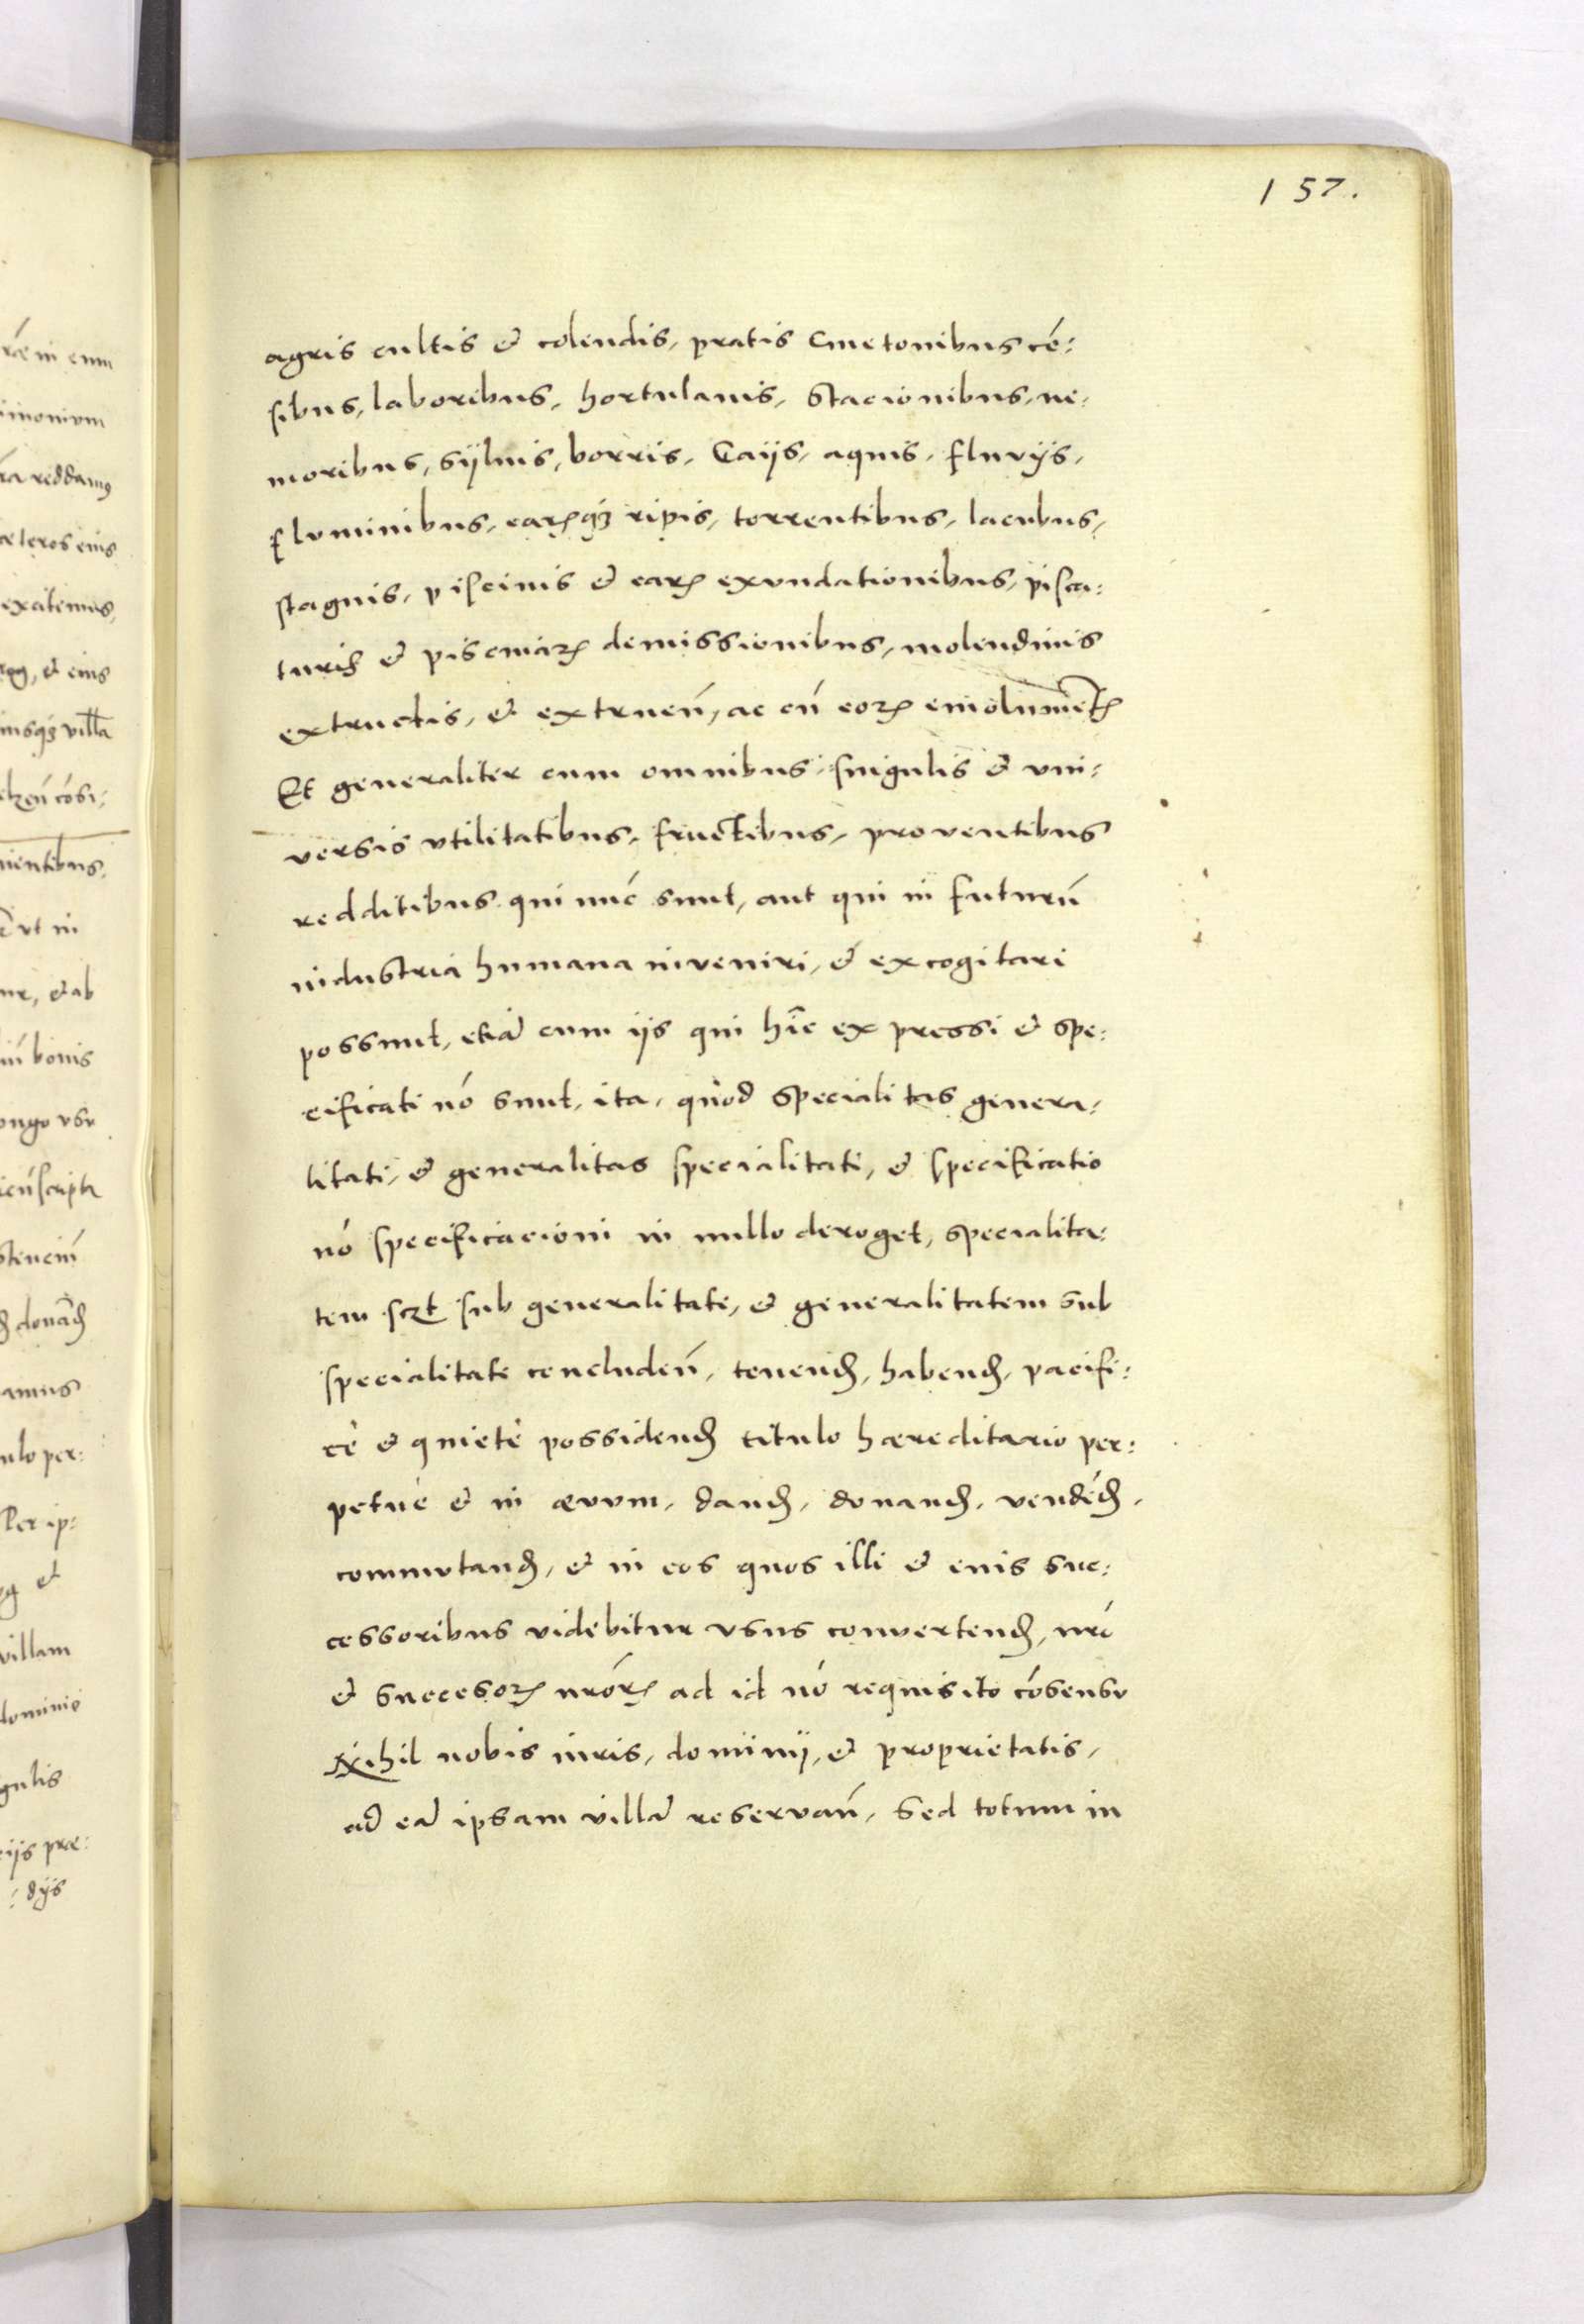 157.
agris cultis et colendis, pratis Cmetonibus cé:
sibus, laboribus, hortulanis, stacionibus, ne:
moribus, sÿluis, borris, Caijs, aquis, fluvijs,
fluminibus, earꝝqꝫ ripis, torrentibus, lacubus,
stagnis, piscinis et earꝝ exundationibus, pisca:
turis et piscinarꝝ demissionibus, molendinis
extructis, et extruen̄, ac cū eorꝝ emolumētꝭ
Et generaliter cum omnibus, singulis et vni:
versis vtilitatibus, fructibus, proventibus
redditibus qui nūc sunt, aut qui in futurū
industria humana inveniri, et excogitari
possunt, etiā cum ijs qui hîc expressi et spe:
cificati nō sunt, ita, quòd specialitas genera:
litati, et generalitas specialitati, et specificatio
nō specificacioni in nullo deroget, specialita:
tem scꝫt sub generalitate, et generalitatem sub
specialitate concluden̄, tenenꝺ, habenꝺ, pacifi:
cè et quietè possidenꝺ titulo hæreditario per:
petuè et in ævum, danꝺ, donanꝺ, vendēꝺ,
commutanꝺ, et in eos quos illi et eius suc:
cessoribus videbitur vsus convertenꝺ, nr̄o
et succesorꝝ nr̄orꝝ ad id nō requisito cōsensu
Nihil nobis iuris, dominij, et proprietatis,
ad eā ipsam villā reservan̄, sed totum in